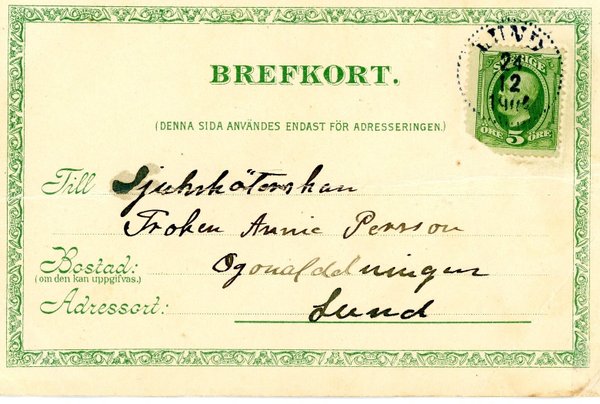 BREFKORT.
(DENNA SIDA ANVÄNDES ENDAST FÖR ADRESSERINGEN.)
LUND
24
12
SVERIGE
ÖRE 5 ÖRE
Till Sjuksköterskan
Fröken Annie Persson
Bostad: Ogonalddningen
(om den kan uppgifvas.)
Adressort: Lund